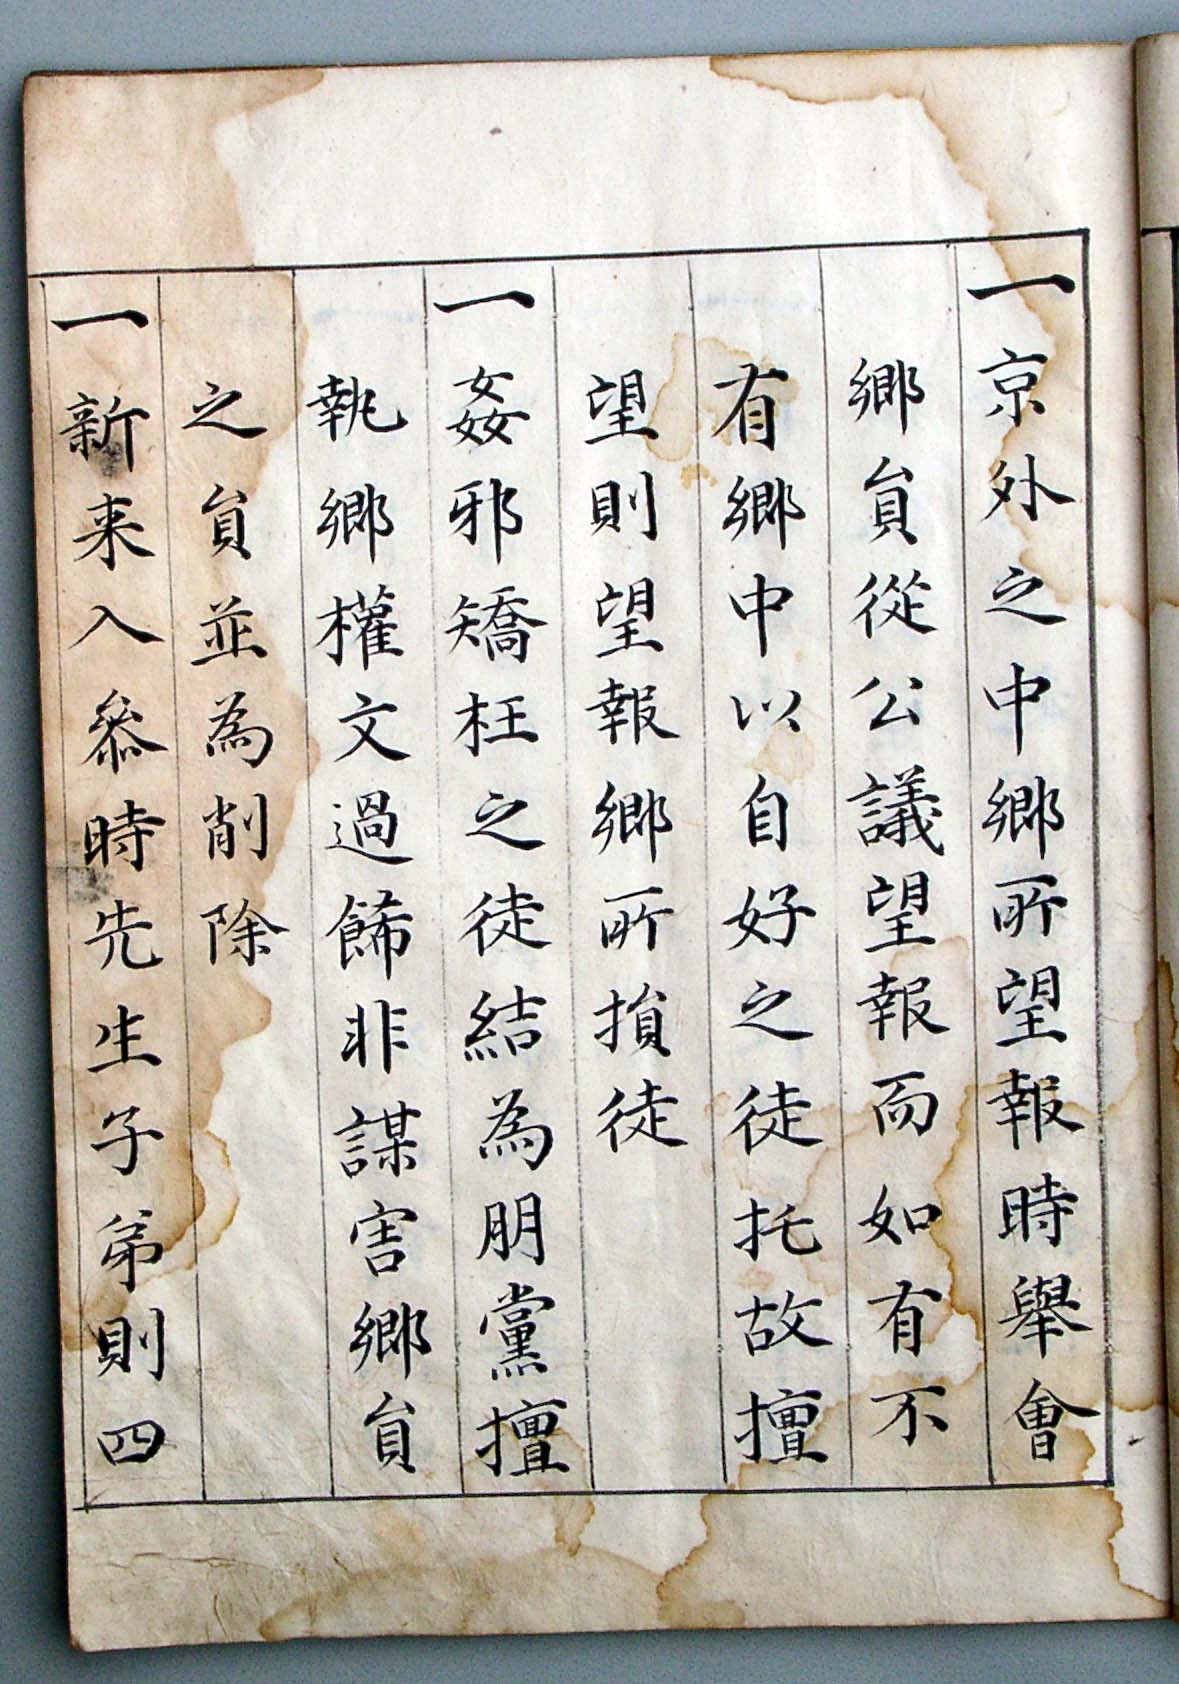 一京外之中鄕所望報時擧會
鄕員從公議望報而如有不
有鄕中以自好之徒托故擅
望則望報鄕所損徒
一姦邪矯枉之徒結為朋黨擅
執鄕權文過飾非謀害鄕員
之員並為削除
一新来入叅時先生子弟則四